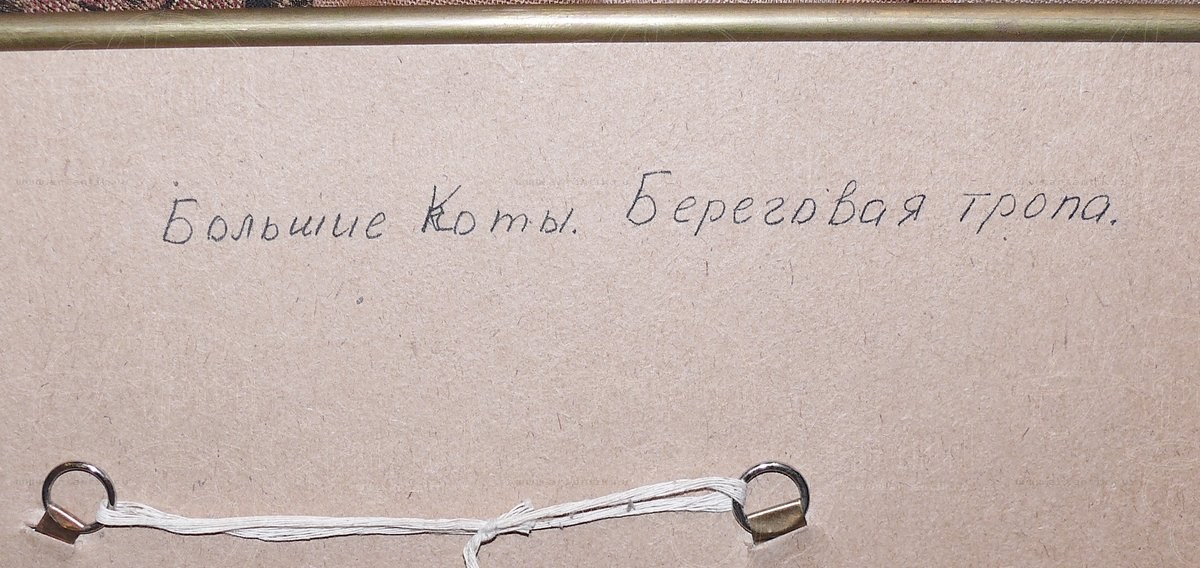 Большие Коты. Береговая тропа.